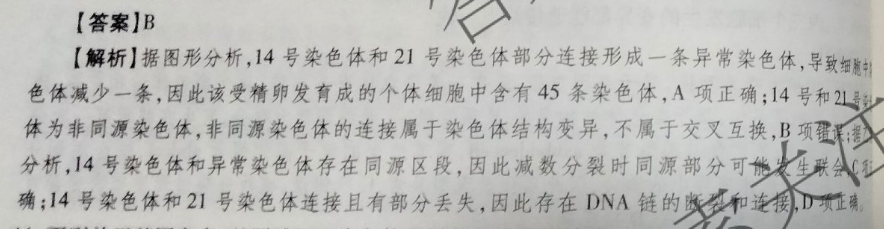 【答案】B
【解析】据图形分析,14 号染色体和 21 号染色体部分连接形成一条异常染色体,导致细胞中
色体减少一条,因此该受精卵发育成的个体细胞中含有 45 条染色体,A 项正确;14 号和 21 号
体为非同源染色体,非同源染色体的连接属于染色体结构变异,不属于交叉互换,B 项错误;据
分析,14 号染色体和异常染色体存在同源区段,因此减数分裂时同源部分可能发生联会,C 项
确;14 号染色体和 21 号染色体连接且有部分丢失,因此存在 DNA 链的断裂和连接,D 项正确。
关注